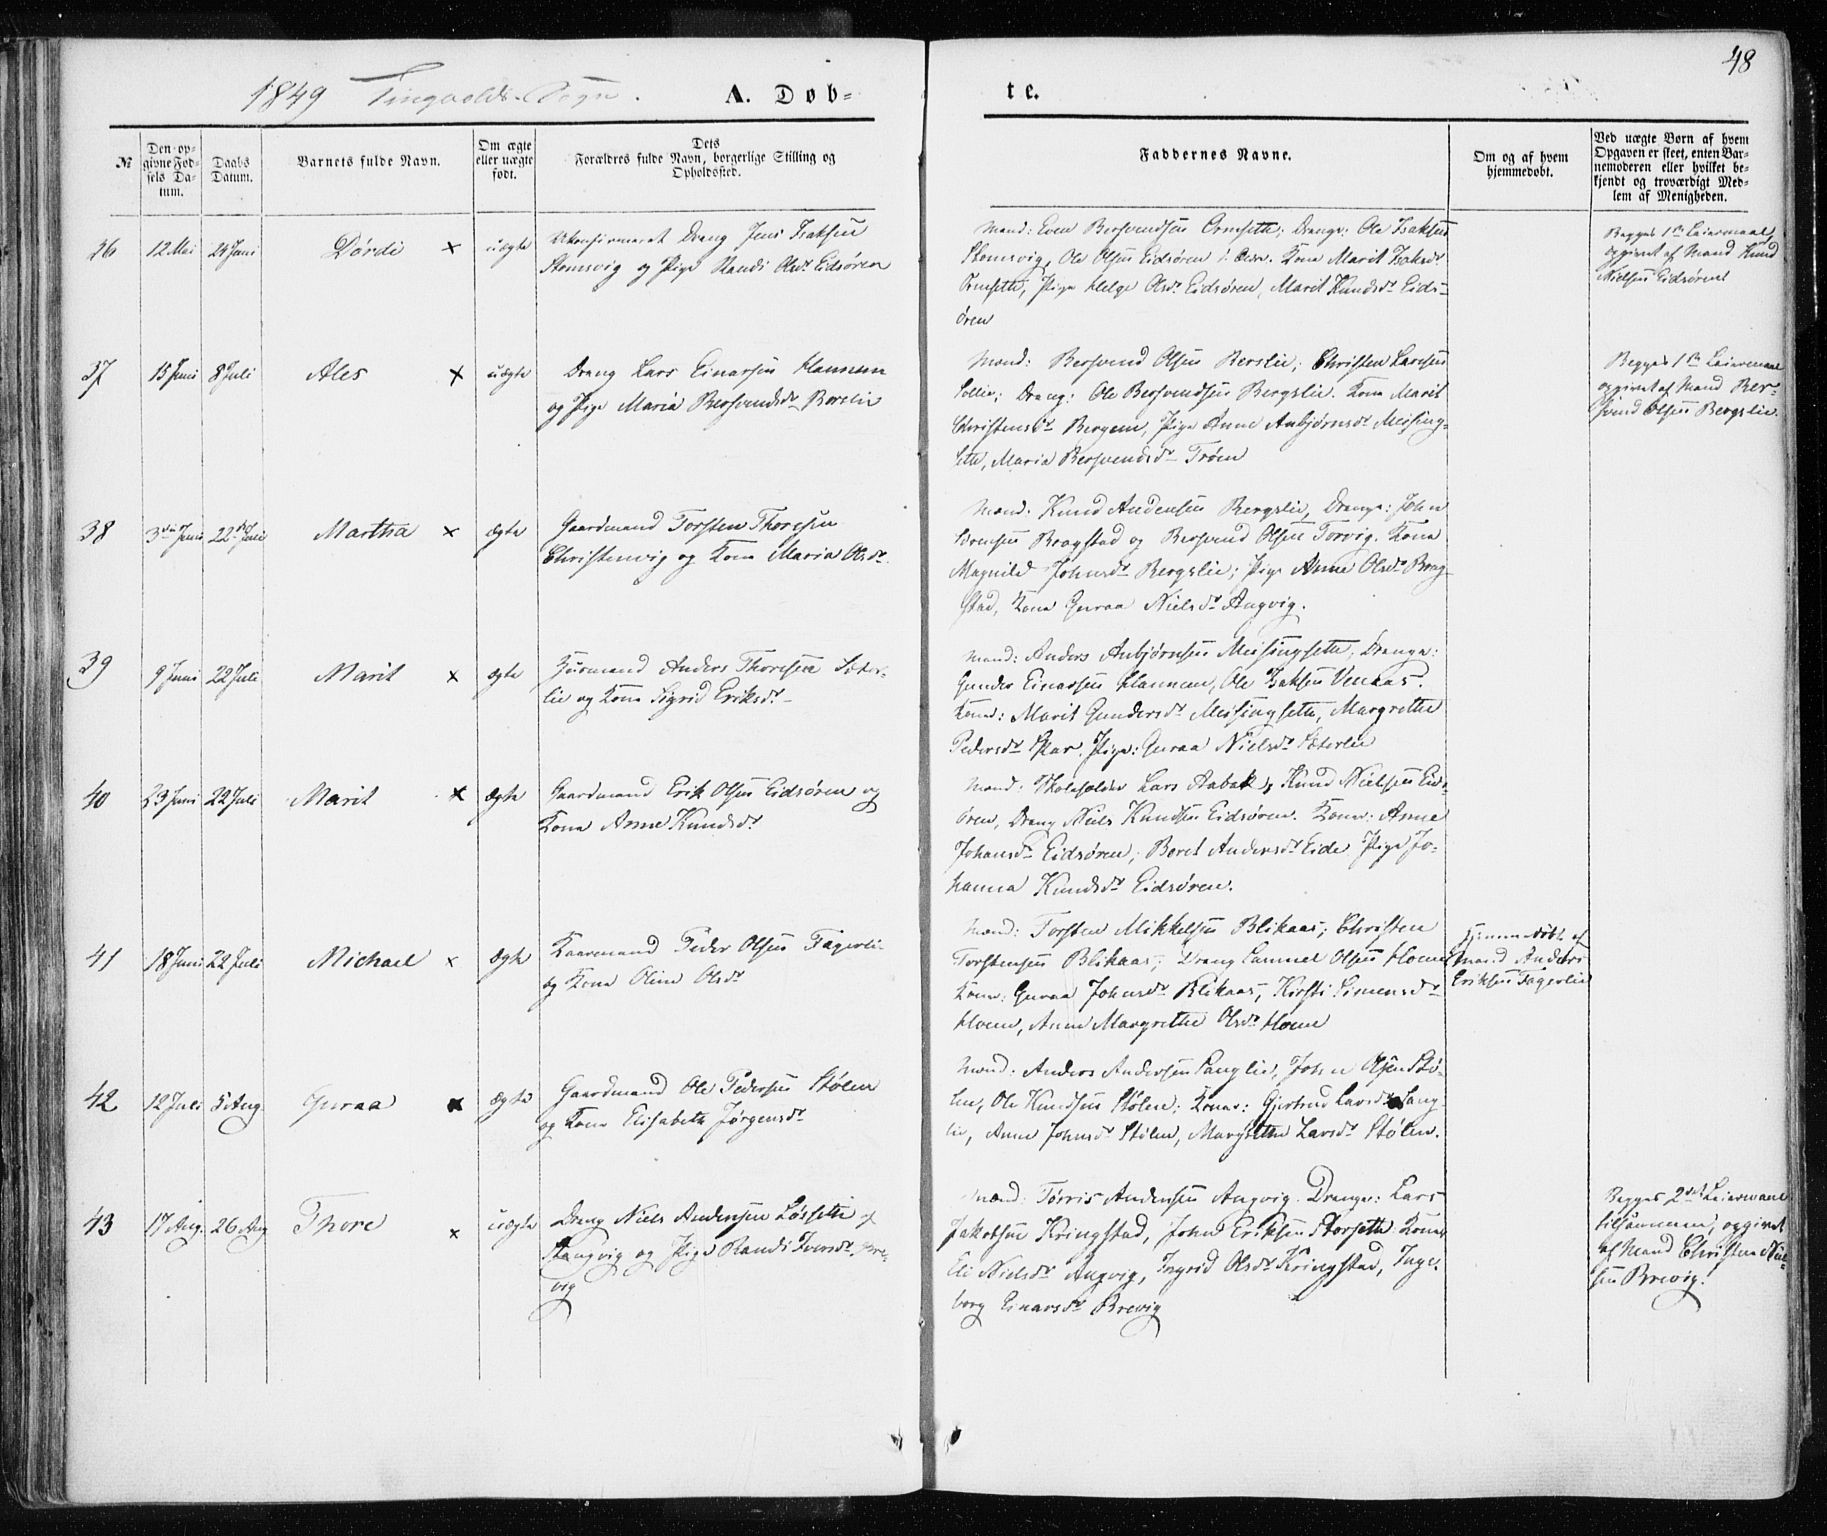 48
1849 Tingvolds Sogn. A. Døb- te.
№
Den opgivne Fødsels Datum.
Daabs Datum.
Barnets fulde Navn.
Om ægte eller uægte født.
Dets Forældres fulde Navn, borgerlige Stilling og Opholdssted.
Faddernes Navne.
Om og af hvem hjemmedøbt.
Ved uægte Børn af hvem Opgaven er skeet, enten Barnemoderen eller hvilket bekjendt og troværdigt Medlem af Menigheden.
36 12 Mai 24 Juni Dørdi × uægte
Ukonfirmeret Dreng Jens Isaksen
Stomsvig og Pige Randi Olsdr Eidsøren
Mænd: Even Bersvendsen Ormsette; Drenge: Ole Isaksen
Stomsvig, Ole Olsen Eidsøren. Kone Marit Isaksdr
Ormsette, Pige Helge Olsdr Eidsøren, Marit Knudsdr Eids-
øren
Begges 1ste Leiermaal,
opgivet af Mand Knud
Nielsen Eidsøren
37 15 Juni 8 Juli Ales × uægte
Dreng Lars Einarsen Hannem
og Pige Maria Bersvendsdr Berslie
Mænd: Bersvend Olsen Berslie; Christen Larsen
Lollie; Dreng: Ole Bersvendsen Bergslie. Kone Marit
Christensdr Bergem, Pige Anne Anbjørnsdr Meising-
sette, Maria Bersvendsdr Trøen
Begges 1ste Leiermaal
opgivet af Mand Ber-
svend Olsen Bergslie.
38 3die Juni 22de Juli Martha × ægte
Gaardmand Torsten Thoresen
Christenvig og Kone Maria Olsdr.
Mænd: Knud Andersen Bergslie, Drenge: John
Sørensen Bragstad og Bersvend Olsen Torvig. Kone
Magnild Johnsdr Bergslie; Pige Anne Olsdr Brag-
stad, Kone Guraa Nielsdr Angvig.
39 9 Juni 22 Juli Marit × ægte
Huusmand Anders Thoresen Sæter-
lie og Kone Sigrid Eriksdr
Mænd: Anders Anbjørnsen Meisingsette, Drenge:
Gunder Einarsen Hannem, Ole Isaksen Venaas.
Koner: Marit Gundersdr Meisingsette, Margrethe
Pedersdr Skar. Pige: Guraa Nielsdr Sæterlie
40 23 Juni 22 Juli Marit × ægte
Gaardmand Erik Olsen Eidsøren og
Kone Anne Knudsdr
Mænd: Skoleholder Lars Aabak, Knud Nielsen Eids-
øren, Dreng Niels Knudsen Eidsøren. Koner: Anne
Johansdr Eidsøren; Beret Andersdr Eide Pige Jo-
hanna Knudsdr Eidsøren.
41 18 Juni 22 Juli Michael × ægte
Kaarmand Peder Olsen Fagerli
og Kone Oline Olsdr
Mænd: Torsten Mikkelsen Blikaas; Christen
Torstensen Blikaas; Dreng Samuel Olsen Hoem
Koner: Guraa Johnsdr Blikaas, Kirsti Simensdr
Hoem, Anne Margrethe Olsdr Hoem
Hjemmedøbt af
Mand Anders
Eriksen Fagerlie
42 12 Juli 5 Aug. Guraa × ægte
Gaardmand Ole Pedersen Stølen
og Kone Elisabeth Jørgensdr
Mænd: Anders Andersen Langlie, John Olsen Stø-
len, Ole Knudsen Stølen; Koner: Gjertrud Larsdr Lang-
lie, Anne Johnsdr Stølen, Margrethe Larsdr Stølen.
43 17 Aug. 26 Aug Thore × uægte
Dreng Niels Andersen Løsette af
Stangvig og Pige Randi Iversdr Bre-
vig
Mænd: Tørris Andersen Angvig. Drenge: Lars
Jakobsen Kringstad, John Eriksen Storsette Koner
Eli Nielsdr Angvig, Ingrid Olsdr Kringstad, Inge-
borg Einarsdr Brevig
Begges 2det Leiermaal
tilsammen, opgivet
af Mand Christen Niel-
sen Brevig.